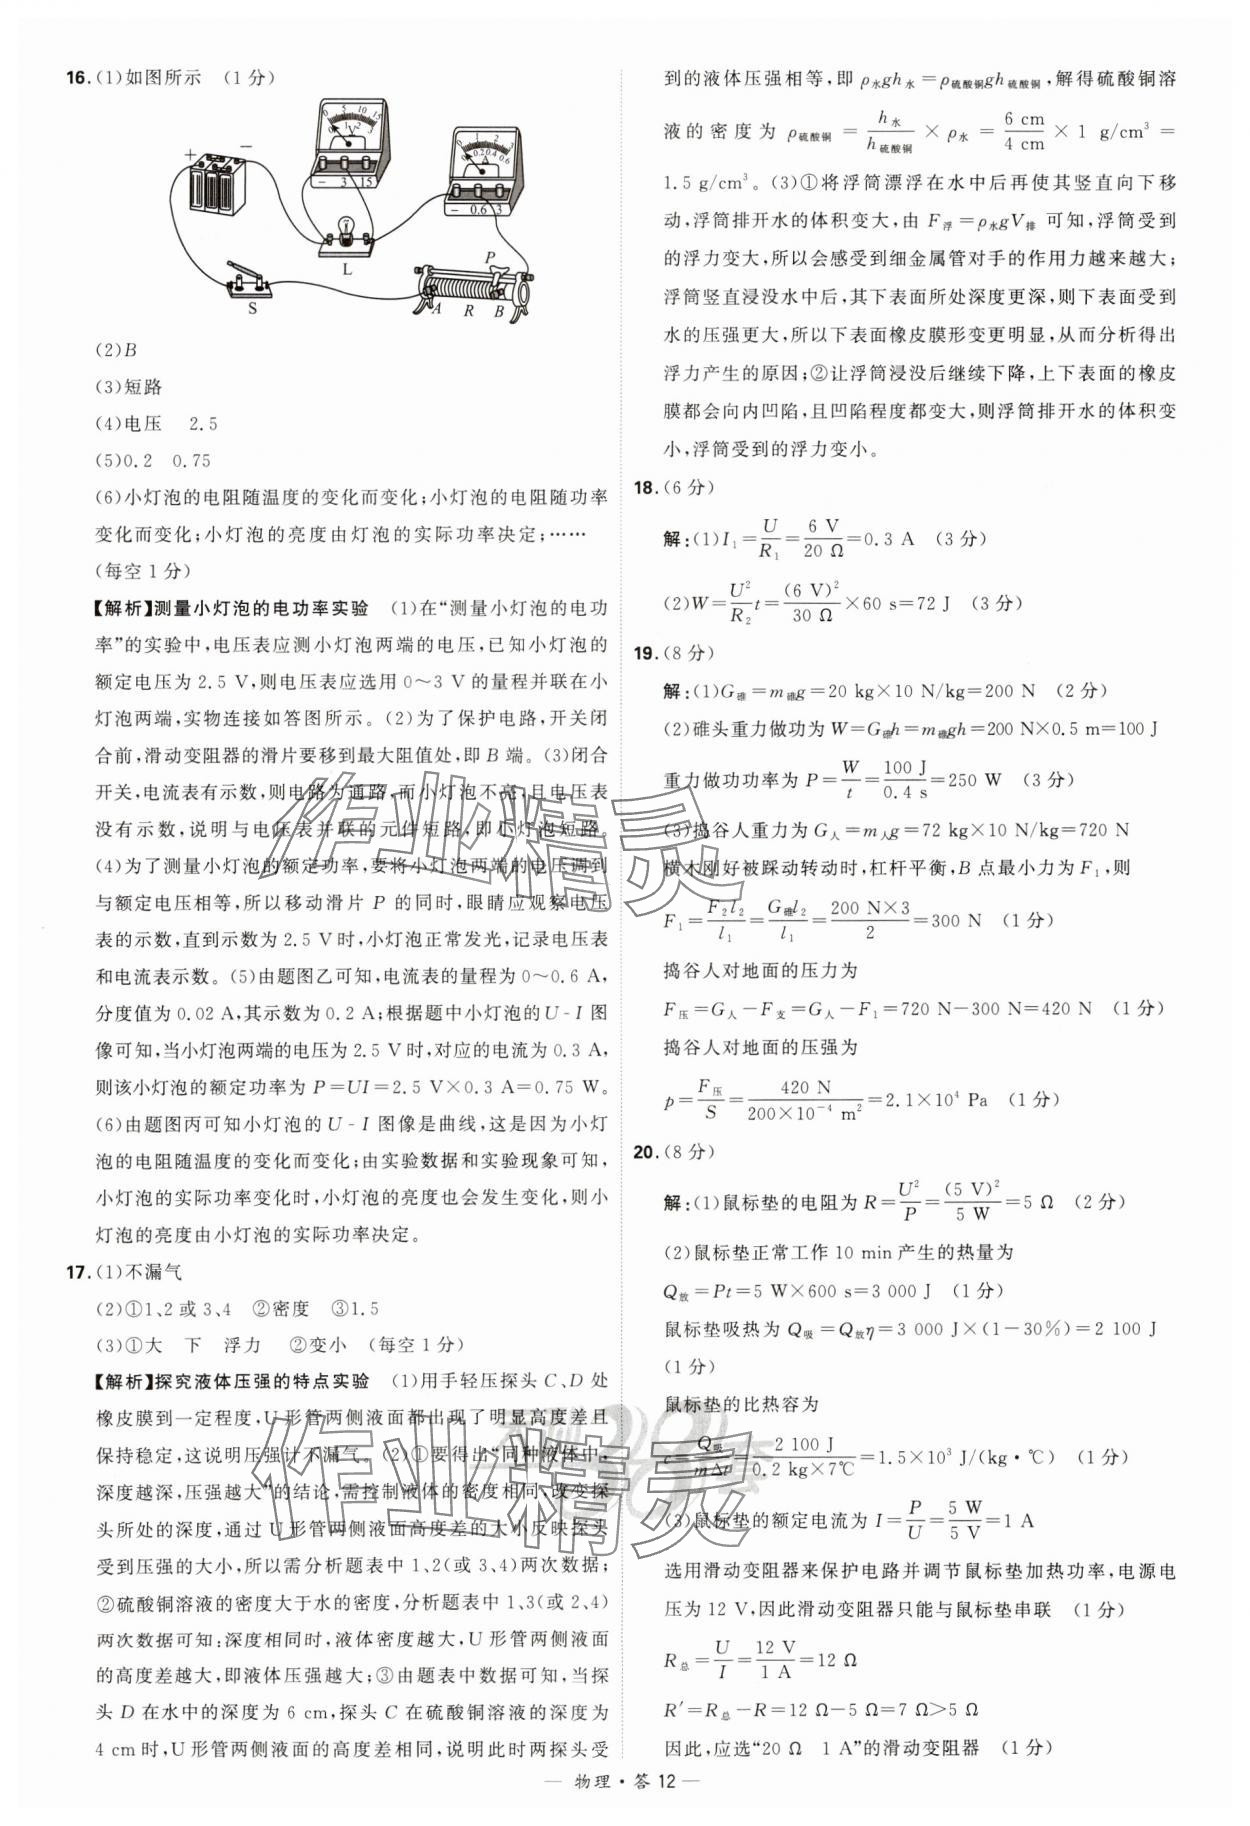 16.(1)如图所示　(1分)
0 5 10 15
0 1 2 3
V
－ 3 15
0 1 2 3
0 0.2 0.4 0.6
A
－ 0.6 3
＋ －
L
P
S
A R B
(2)B
(3)短路
(4)电压　2.5
(5)0.2　0.75
(6)小灯泡的电阻随温度的变化而变化;小灯泡的电阻随功率
变化而变化;小灯泡的亮度由灯泡的实际功率决定;……
(每空1分)
【解析】测量小灯泡的电功率实验　(1)在“测量小灯泡的电功
率”的实验中,电压表应测小灯泡两端的电压,已知小灯泡的
额定电压为2.5 V,则电压表应选用0～3 V的量程并联在小
灯泡两端,实物连接如答图所示。(2)为了保护电路,开关闭
合前,滑动变阻器的滑片要移到最大阻值处,即B端。(3)闭合
开关,电流表有示数,则电路为通路,而小灯泡不亮,且电压表
没有示数,说明与电压表并联的元件短路,即小灯泡短路。
(4)为了测量小灯泡的额定功率,要将小灯泡两端的电压调到
与额定电压相等,所以移动滑片P的同时,眼睛应观察电压
表的示数,直到示数为2.5 V时,小灯泡正常发光,记录电压表
和电流表示数。(5)由题图乙可知,电流表的量程为0～0.6 A,
分度值为0.02 A,其示数为0.2 A;根据题中小灯泡的U-I图
像可知,当小灯泡两端的电压为2.5 V时,对应的电流为0.3 A,
则该小灯泡的额定功率为P=UI=2.5 V×0.3 A=0.75 W。
(6)由题图丙可知小灯泡的U-I图像是曲线,这是因为小灯
泡的电阻随温度的变化而变化;由实验数据和实验现象可知,
小灯泡的实际功率变化时,小灯泡的亮度也会发生变化,则小
灯泡的亮度由小灯泡的实际功率决定。
17.(1)不漏气
(2)①1、2或3、4　②密度　③1.5
(3)①大　下　浮力　②变小　(每空1分)
【解析】探究液体压强的特点实验　(1)用手轻压探头C、D处
橡皮膜到一定程度,U形管两侧液面都出现了明显高度差且
保持稳定,这说明压强计不漏气。(2)①要得出“同种液体中,
深度越深,压强越大”的结论,需控制液体的密度相同,改变探
头所处的深度,通过U形管两侧液面高度差的大小反映探头
受到压强的大小,所以需分析题表中1、2(或3、4)两次数据;
②硫酸铜溶液的密度大于水的密度,分析题表中1、3(或2、4)
两次数据可知:深度相同时,液体密度越大,U形管两侧液面
的高度差越大,即液体压强越大;③由题表中数据可知,当探
头D在水中的深度为6 cm,探头C在硫酸铜溶液的深度为
4 cm时,U形管两侧液面的高度差相同,说明此时两探头受
到的液体压强相等,即ρ水gh水=ρ硫酸铜gh硫酸铜,解得硫酸铜溶
液的密度为ρ硫酸铜=h水/h硫酸铜×ρ水=6 cm/4 cm×1 g/cm³=
1.5 g/cm³。(3)①将浮筒漂浮在水中后再使其竖直向下移
动,浮筒排开水的体积变大,由F浮=ρ水gV排可知,浮筒受到
的浮力变大,所以会感受到细金属管对手的作用力越来越大;
浮筒竖直浸没水中后,其下表面所处深度更深,则下表面受到
水的压强更大,所以下表面橡皮膜形变更明显,从而分析得出
浮力产生的原因;②让浮筒浸没后继续下降,上下表面的橡皮
膜都会向内凹陷,且凹陷程度都变大,则浮筒排开水的体积变
小,浮筒受到的浮力变小。
18.(6分)
解:(1)I₁=U/R₁=6 V/20 Ω=0.3 A　(3分)
(2)W=U²/R₂t=(6 V)²/30 Ω×60 s=72 J　(3分)
19.(8分)
解:(1)G碓=m碓g=20 kg×10 N/kg=200 N　(2分)
(2)碓头重力做功为W=G碓h=m碓gh=200 N×0.5 m=100 J
重力做功功率为P=W/t=100 J/0.4 s=250 W　(3分)
(3)捣谷人重力为G人=m人g=72 kg×10 N/kg=720 N
横木刚好被踩动转动时,杠杆平衡,B点最小力为F₁,则
F₁=F₂l₂/l₁=G碓l₂/l₁=200 N×3/2=300 N　(1分)
捣谷人对地面的压力为
F压=G人－F支=G人－F₁=720 N－300 N=420 N　(1分)
捣谷人对地面的压强为
p=F压/S=420 N/200×10⁻⁴ m²=2.1×10⁴ Pa　(1分)
20.(8分)
解:(1)鼠标垫的电阻为R=U²/P=(5 V)²/5 W=5 Ω　(2分)
(2)鼠标垫正常工作10 min产生的热量为
Q放=Pt=5 W×600 s=3 000 J　(1分)
鼠标垫吸热为Q吸=Q放η=3 000 J×(1－30%)=2 100 J
(1分)
鼠标垫的比热容为
c=Q吸/mΔt=2 100 J/0.2 kg×7℃=1.5×10³ J/(kg·℃)　(1分)
(3)鼠标垫的额定电流为I=P/U=5 W/5 V=1 A
选用滑动变阻器来保护电路并调节鼠标垫加热功率,电源电
压为12 V,因此滑动变阻器只能与鼠标垫串联　(1分)
R总=U/I=12 V/1 A=12 Ω
R′=R总－R=12 Ω－5 Ω=7 Ω>5 Ω
因此,应选“20 Ω　1 A”的滑动变阻器　(1分)
作业精灵
作业精灵
— 物理·答12 —